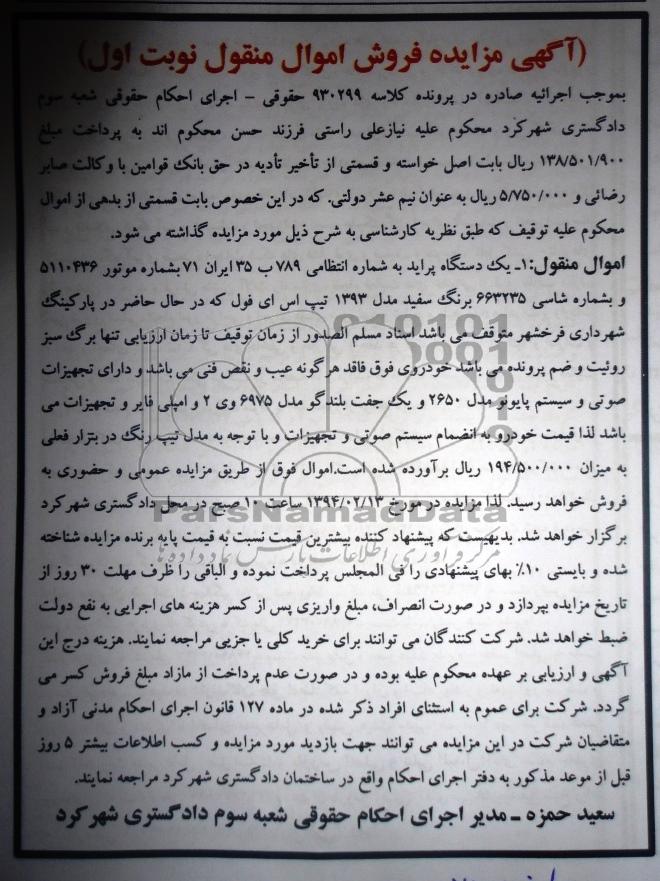 (آگهی مزایده فروش اموال منقول نوبت اول)
بموجب اجرائیه صادره در پرونده کلاسه ۹۳۰۲۹۹ حقوقی - اجرای احکام حقوقی شعبه سوم
دادگستری شهرکرد محکوم علیه نیازعلی راستی فرزند حسن محکوم اند به پرداخت مبلغ
۱۳۸/۵۰۱/۹۰۰ ریال بابت اصل خواسته و قسمتی از تأخیر تأدیه در حق بانک قوامین با وکالت صابر
رضائی و ۵/۷۵۰/۰۰۰ ریال به عنوان نیم عشر دولتی. که در این خصوص بابت قسمتی از بدهی از اموال
محکوم علیه توقیف که طبق نظریه کارشناسی به شرح ذیل مورد مزایده گذاشته می شود.
اموال منقول: ۱ـ یک دستگاه پراید به شماره انتظامی ۷۸۹ ب ۳۵ ایران ۷۱ بشماره موتور ۵۱۱۰۴۳۶
و بشماره شاسی ۶۶۳۲۳۵ برنگ سفید مدل ۱۳۹۳ تیپ اس ای فول که در حال حاضر در پارکینگ
شهرداری فرخشهر متوقف می باشد اسناد مسلم الصدور از زمان توقیف تا زمان ارزیابی تنها برگ سبز
روئیت و ضم پرونده می باشد خودروی فوق فاقد هرگونه عیب و نقص فنی می باشد و دارای تجهیزات
صوتی و سیستم پایونو مدل ۲۶۵۰ و یک جفت بلندگو مدل ۶۹۷۵ وی ۲ و امپلی فایر و تجهیزات می
باشد لذا قیمت خودرو به انضمام سیستم صوتی و تجهیزات و با توجه به مدل تیپ رنگ در بتزار فعلی
به میزان ۱۹۴/۵۰۰/۰۰۰ ریال برآورده شده است.اموال فوق از طریق مزایده عمومی و حضوری به
فروش خواهد رسید. لذا مزایده در مورخ ۱۳۹۴/۰۲/۱۳ ساعت ۱۰ صبح در محل دادگستری شهرکرد
برگزار خواهد شد. بدیهیست که پیشنهاد کننده بیشترین قیمت نسبت به قیمت پایه برنده مزایده شناخته
شده و بایستی ۱۰٪ بهای پیشنهادی را فی المجلس پرداخت نموده و الباقی را ظرف مهلت ۳۰ روز از
تاریخ مزایده بپردازد و در صورت انصراف، مبلغ واریزی پس از کسر هزینه های اجرایی به نفع دولت
ضبط خواهد شد. شرکت کنندگان می توانند برای خرید کلی یا جزیی مراجعه نمایند. هزینه درج این
آگهی و ارزیابی بر عهده محکوم علیه بوده و در صورت عدم پرداخت از مازاد مبلغ فروش کسر می
گردد. شرکت برای عموم به استثنای افراد ذکر شده در ماده ۱۲۷ قانون اجرای احکام مدنی آزاد و
متقاضیان شرکت در این مزایده می توانند جهت بازدید مورد مزایده و کسب اطلاعات بیشتر ۵ روز
قبل از موعد مذکور به دفتر اجرای احکام واقع در ساختمان دادگستری شهرکرد مراجعه نمایند.
سعید حمزه ـ مدیر اجرای احکام حقوقی شعبه سوم دادگستری شهرکرد
ParsNamadData